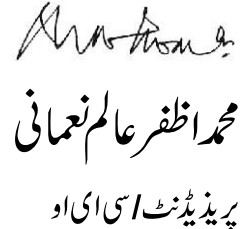 محمد اظفر عالم نعمانی
پریذیڈنٹ/سی ای او